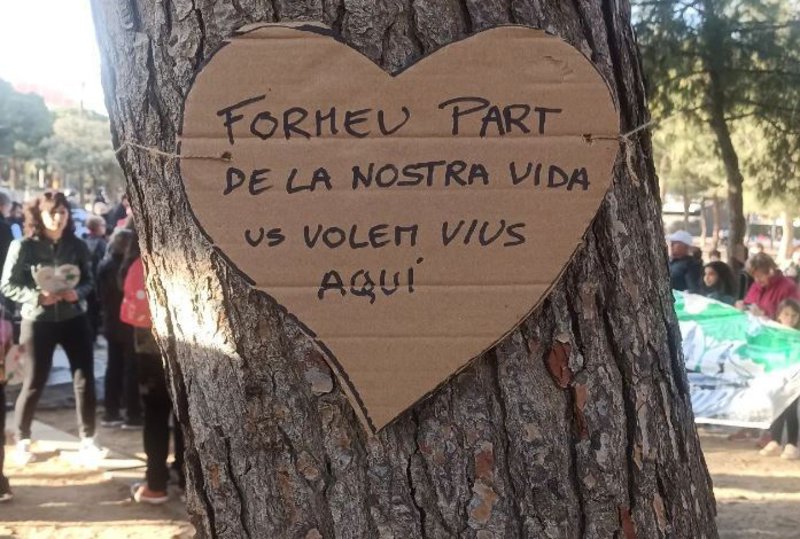 FORMEU PART
DE LA NOSTRA VIDA
US VOLEM VIUS
AQUÍ